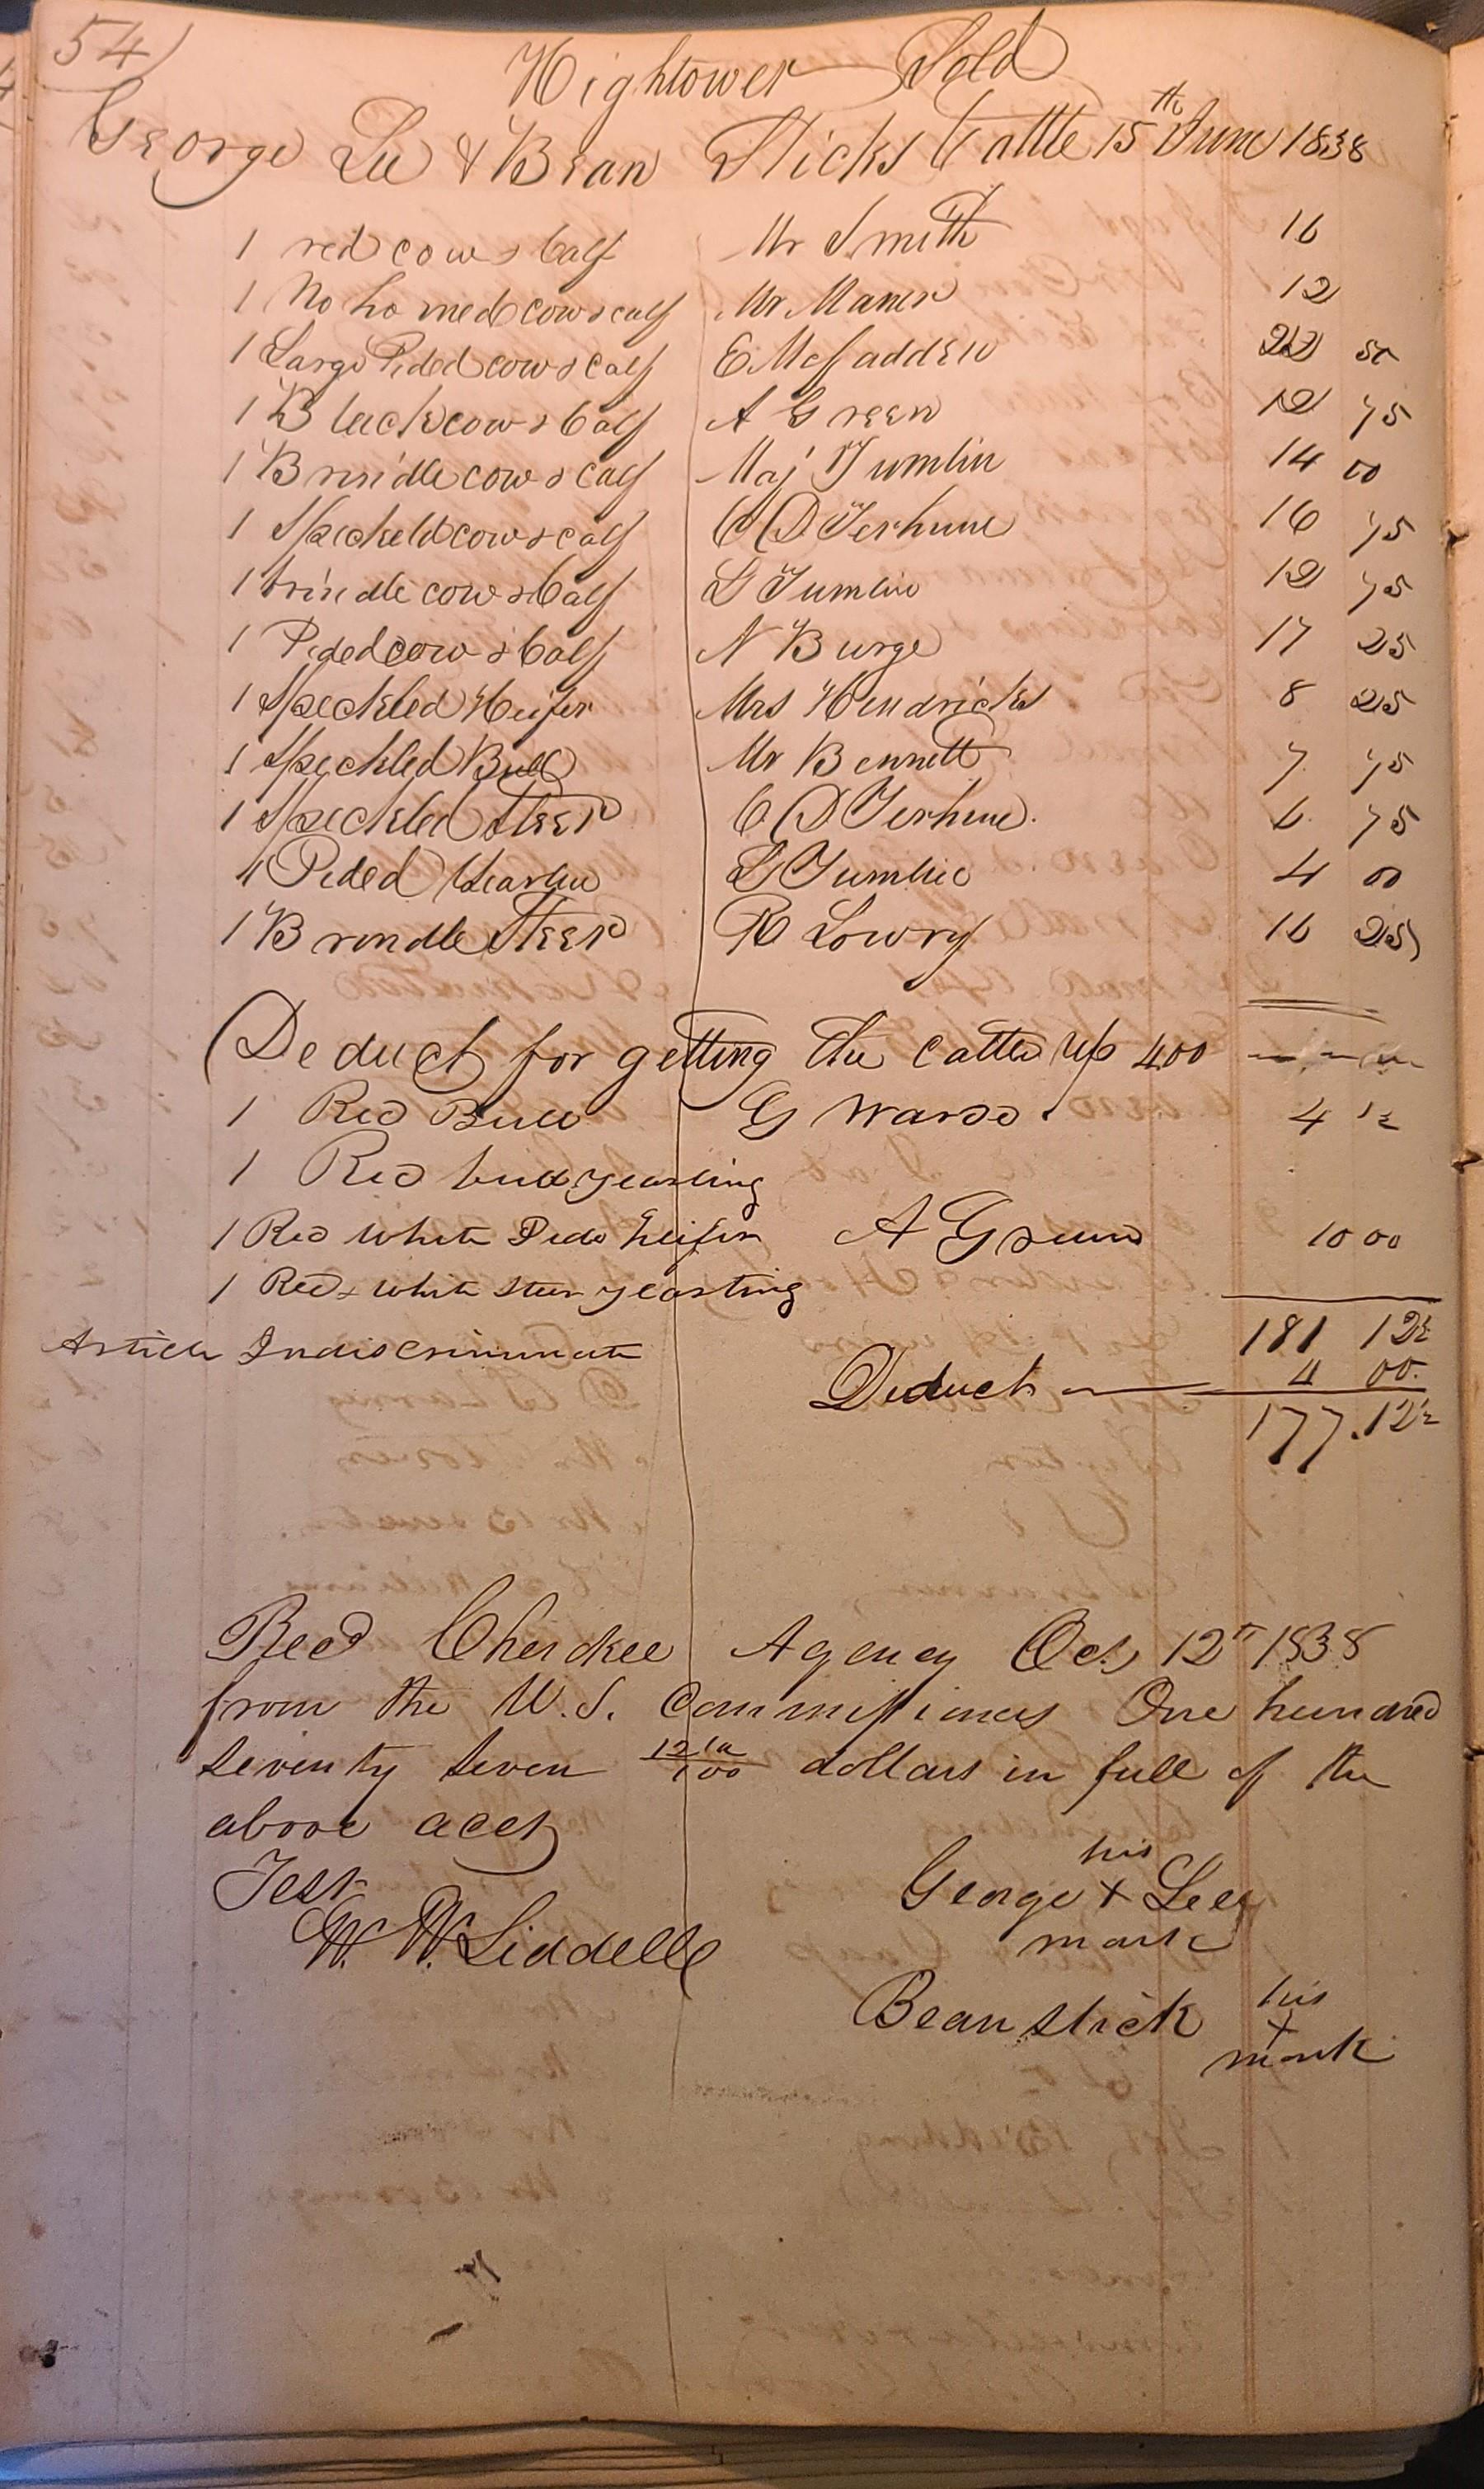 54
Hightower Sold
George Lee & Bean Sticks Cattle 15th June 1838
1 red cow & Calf Mr Smith 16
1 No horned cow & calf Mr Maner 12
1 Large Pided cow & calf E McFadden 22 50
1 Black cow & Calf A Green 12 75
1 Brindle cow & calf Maj Tumlin 14 00
1 Speckeld cow & calf C D Terhune 16 75
1 brindle cow & Calf L Tumlin 12 75
1 Pided cow & Calf N Burge 17 25
1 Speckled Heifer Mrs Hendricks 8 25
1 Speckled Bull Mr Bennett 7 75
1 Speckled Steer C D Terhune. 6 75
1 Pided Yearlin L Tumlin 4 00
1 Brindle Steer R Lowry 16 25
Deduct for getting the cattle up 4 00
1 Red Bull G Ward 4 12
1 Red bull yearling
1 Red White Pide heifer A Green 10 00
1 Red & White Steer yearling
Article Indiscriminate 181 12½
Deduct 4 00.
177.12½
Recd Cherokee Agency Oct 12th 1838
from the U.S. Commissioners One hundred
seventy seven 12½/100 dollars in full of the
above acct
Test his
W. W. Liddell George + Lee
mark
Bean Stick his
+
mark